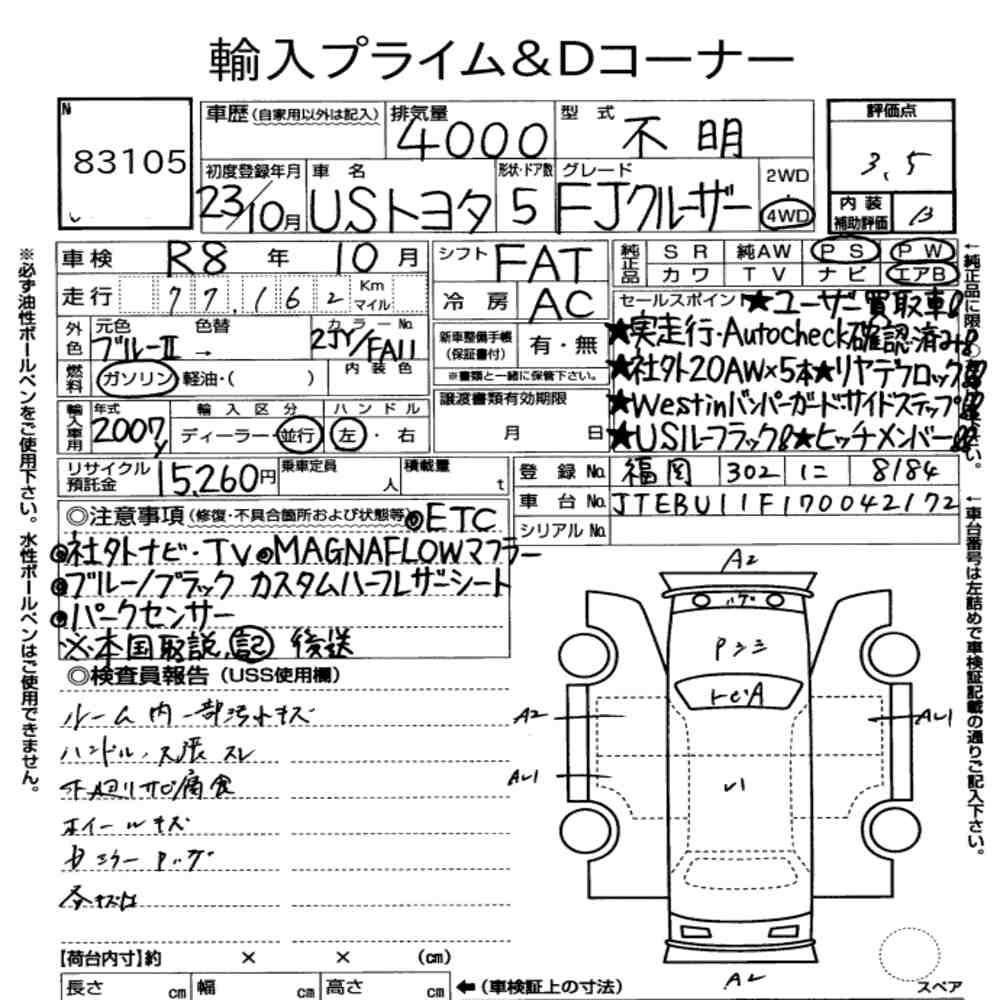 輸入プライム&Dコーナー
N
83105
車歴(自家用以外は記入)
排気量
4000
型 式
不明
評価点
3.5
初度登録年月
23/10月
車 名
USトヨタ
形状・ドア数
5
グレード
FJクルーザー
2WD
・
4WD
内 装
補助評価
B
車検
R8 年 10 月
シフト
FAT
純正品
SR 純AW PS PW
カワ TV ナビ エアB
走行
77,162
Km
マイル
冷房
AC
セールスポイント
★ユーザー買取車!!
★実走行・Autocheck確認済み!!
★社外20AW×5本★リヤデフロック!!
★Westinバンパーガード・サイドステップ!!
★USルーフラック!!★ヒッチメンバー!!
外色
元色
ブルーII
色替
→
カラーNo.
2JY/FA11
内装色
新車整備手帳
(保証書付)
有・無
※書類と一緒に保管下さい。
燃料
ガソリン・軽油・( )
譲渡書類有効期限
月 日
輸入車用
年式
2007y
輸入区分
ディーラー・並行
ハンドル
左・右
リサイクル
預託金
15,260円
乗車定員
人
積載量
t
登録No.
福岡 302 に 8184
車台No.
JTEBU11F170042172
シリアルNo.
◎注意事項(修復・不具合箇所および状態等)
◎ETC
◎社外ナビ・TV◎MAGNAFLOWマフラー
◎ブルー/ブラック カスタムハーフレザーシート
◎パークセンサー
※本国取説、記 後送
◎検査員報告(USS使用欄)
ルーム内一部汚れキズ
ハンドル・ス張スレ
下廻りサビ腐食
ホイールキズ
各キズ凹
A2
トビA
A2
【荷台内寸】約 × × (cm)
長さ cm
幅 cm
高さ cm
←(車検証上の寸法)
スペア
※必ず油性ボールペンをご使用下さい。水性ボールペンはご使用できません。
←車台番号は左詰めで車検証記載の通りご記入下さい。